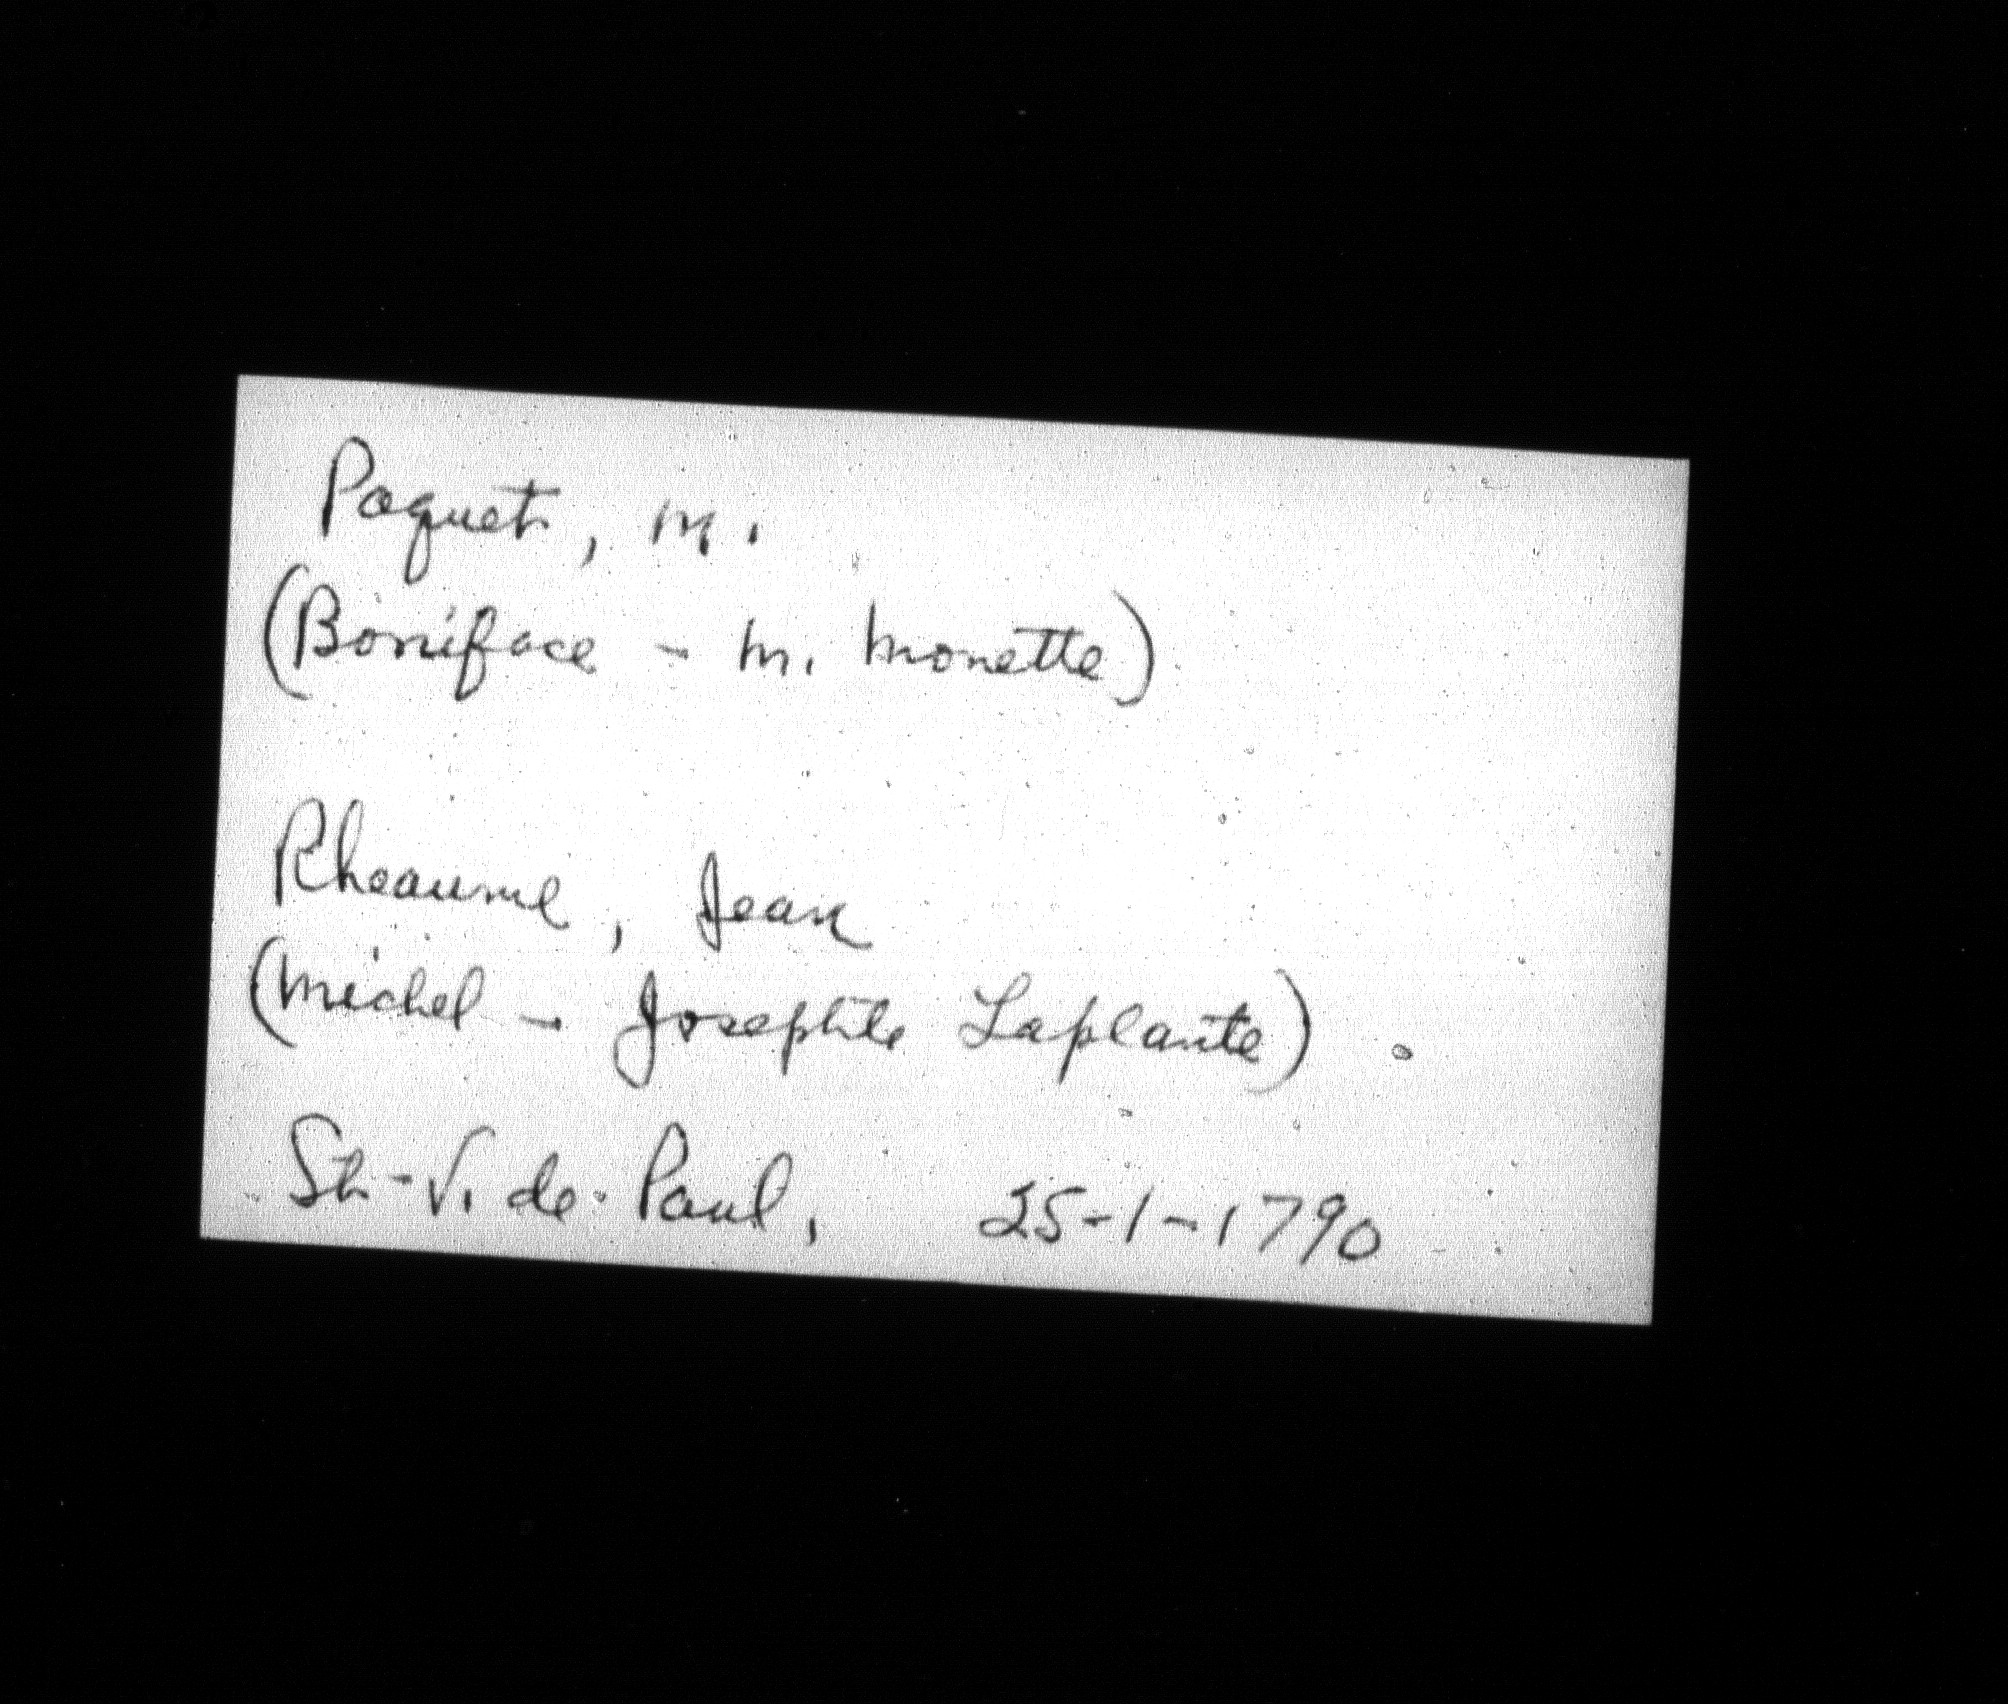 Paquet, M.
(Boniface - M. Monette)
Rheaume, Jean
(Michel - Josephte Laplante).
St-V. de Paul, 25-1-1790